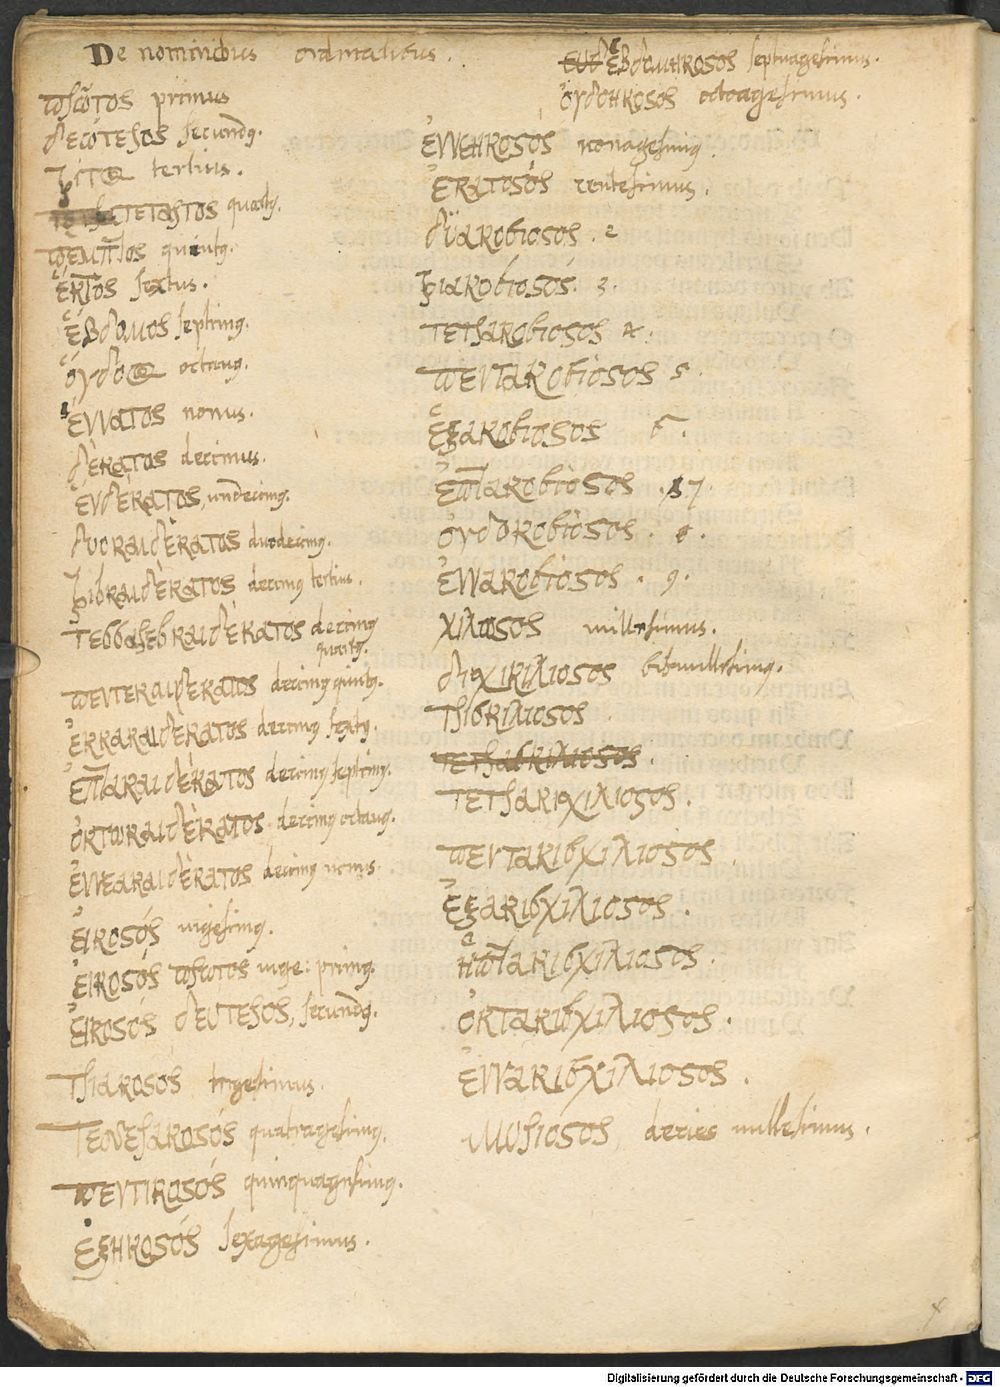 De nominibus ordinalibus.
πρῶτος primus
δεύτερος secundus.
τρίτος tertius.
τέταρτος quartus.
πέμπτος quintus.
ἕκτος sextus.
ἕβδομος septimus.
ὄγδοος octavus.
ἔννατος nonus.
δέκατος decimus.
ἑνδέκατος, undecimus.
δυοκαιδέκατος duodecimus.
τρισκαιδέκατος decimus tertius.
τεσσαρεσκαιδέκατος decimus
quartus.
πεντεκαιδέκατος decimus quintus.
ἑκκαιδέκατος decimus sextus.
ἑπτακαιδέκατος decimus septimus.
ὀκτωκαιδέκατος. decimus octavus.
ἐννεακαιδέκατος decimus nonus.
εἰκοσός vigesimus.
εἰκοσός πρωτος vige: primus.
εἰκοσός δευτερος, secundus.
τριακοσός trigesimus.
τεσσαρακοσός quatragesimus.
πεντικοσός quinquagesimus.
ἑξηκοσός sexagesimus.
ἑβδομηκοσος septuagesimus.
ὀγδοηκοσος octoagesimus.
ἐννενηκοσός nonagesimus.
ἑκατοσός centesimus.
διακοσιοσός. 2
τριακοσιοσός. 3.
τετρακοσιοσος 4.
πεντακοσιοσος 5.
ἑξακοσιοσος 6.
ἑπτακοσιοσος. 7
ὀγδοκοσιοσος. 8.
ἐννακοσιοσος. 9.
χιλιοσος millesimus.
διςχικιλιοσος bismillesimus.
τρισκιλιοσος
τετρασκιλιοσος.
τετρακιχιλιοσος.
πεντακισχιλιοσος.
ἑξακισχιλιοσος.
ἡπτακισχιλιοσος.
ὀκτακισχιλιοσος.
ἐννακισχιλιοσος.
μυριοσος decies millesimus.